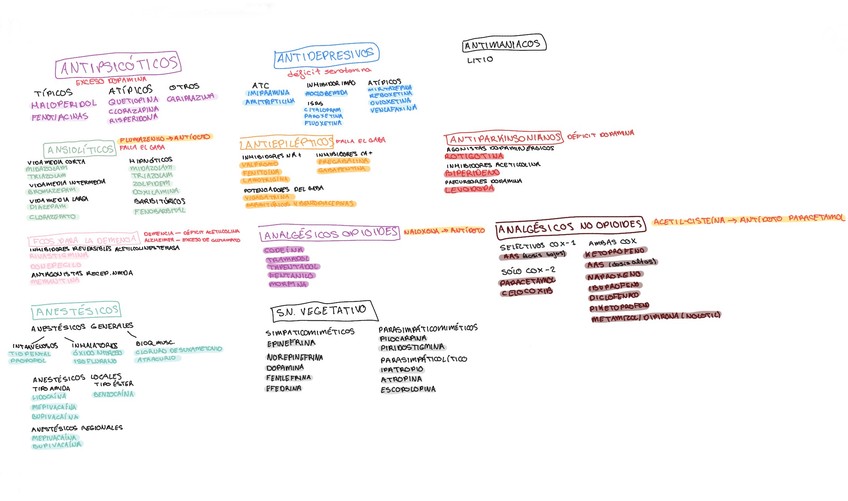 ANTIPSICÓTICOS
EXCESO DOPAMINA
TÍPICOS
HALOPERIDOL
FENOTIACINAS
ATÍPICOS
QUETIAPINA
CLORAZAPINA
RISPERIDONA
OTROS
CARIPRAZINA
ANTIDEPRESIVOS
déficit serotonina
ATC
IMIPRAMINA
AMITRIPTILINA
INHIBIDOR IMAO
MOCLOBEMIDA
ISRS
CITALOPRAM
PAROXETINA
FLUOXETINA
ATÍPICOS
MIRTAZEPINA
REBOXETINA
DULOXETINA
VENLAFAXINA
ANTIMANIACOS
LITIO
ANSIOLÍTICOS
FLUMAZENILO → ANTÍDOTO
FALLA EL GABA
VIDA MEDIA CORTA
MIDAZOLAM
TRIAZOLAM
VIDA MEDIA INTERMEDIA
BROMAZEPAM
VIDA MEDIA LARGA
DIAZEPAM
CLORAZEPATO
HIPNÓTICOS
MIDAZOLAM
TRIAZOLAM
ZOLPIDEM
DOXILAMINA
BARBITÚRICOS
FENOBARBITAL
ANTIEPILÉPTICOS
FALLA EL GABA
INHIBIDORES NA+
VALPROATO
FENITOÍNA
LAMOTRIGINA
INHIBIDORES CA+
PREGABALINA
GABAPENTINA
POTENCIADORES DEL GABA
VIGABATRINA
BARBITÚRICOS Y BENZODIACEPINAS
ANTIPARKINSONIANOS
DÉFICIT DOPAMINA
AGONISTAS DOPAMINÉRGICOS
ROTIGOTINA
INHIBIDORES ACETILCOLINA
BIPERIDENO
PRECURSORES DOPAMINA
LEVODOPA
FCOS PARA LA DEMENCIA
DEMENCIA — DÉFICIT ACETILCOLINA
ALZHEIMER — EXCESO DE GLUTAMATO
INHIBIDORES REVERSIBLES ACETILCOLINESTERASA
RIVASTIGMINA
DONEPECILO
ANTAGONISTAS RECEP. NMDA
MEMANTINA
ANALGÉSICOS OPIOIDES
NALOXONA → ANTÍDOTO
CODEÍNA
TRAMADOL
TAPENTADOL
FENTANILO
MORFINA
ANALGÉSICOS NO OPIOIDES
ACETIL-CISTEÍNA → ANTÍDOTO PARACETAMOL
SELECTIVOS COX-1
AAS (dosis bajas)
SÓLO COX-2
PARACETAMOL
CELOCOXIB
AMBAS COX
KETOPROFENO
AAS (dosis altas)
NAPROXENO
IBUPROFENO
DICLOFENACO
PIKETOPROFENO
METAMIZOL / DIPIRONA (NOLOTIL)
ANESTÉSICOS
ANESTÉSICOS GENERALES
INTRAVENOSOS
TIOPENTAL
PROPOFOL
INHALATORIOS
ÓXIDO NITROSO
ISOFLURANO
BLOQ. MUSC.
CLORURO DE SUXAMETONIO
ATRACURIO
ANESTÉSICOS LOCALES
TIPO AMIDA
LIDOCAÍNA
MEPIVACAÍNA
BUPIVACAÍNA
TIPO ÉSTER
BENZOCAÍNA
ANESTÉSICOS REGIONALES
MEPIVACAÍNA
BUPIVACAÍNA
S.N. VEGETATIVO
SIMPATICOMIMÉTICOS
EPINEFRINA
NOREPINEFRINA
DOPAMINA
FENILEFRINA
EFEDRINA
PARASIMPÁTICOMIMÉTICOS
PILOCARPINA
PIRIDOSTIGMINA
PARASIMPÁTICOLÍTICO
IPATROPIO
ATROPINA
ESCOPOLOPINA